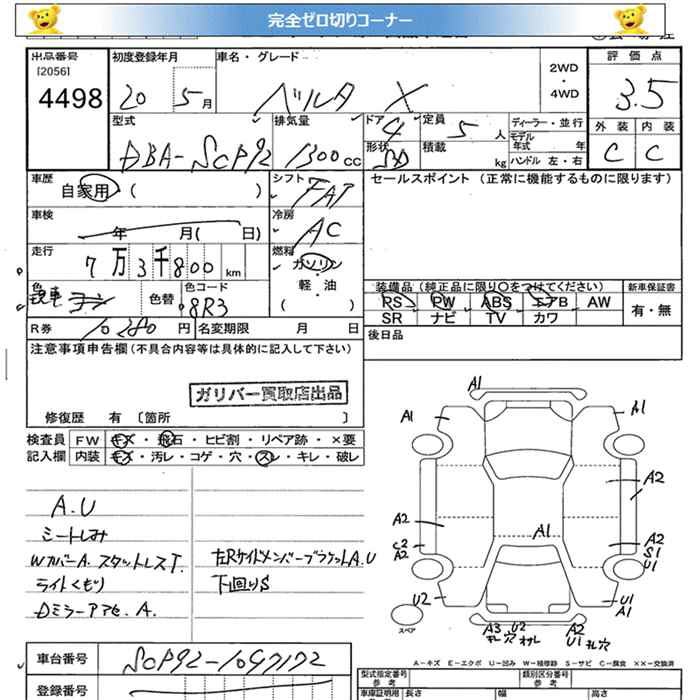 完全ゼロ切りコーナー
出品番号
[2056]
4498
初度登録年月
20 5月
車名・グレード
ベルタ X
2WD
・
4WD
評価点
3.5
外装 内装
C C
型式
DBA-SCP92
排気量
1300cc
ドア
4
形状
SD
定員
5人
積載
kg
ディーラー・並行
モデル
年式 年
ハンドル 左・右
車歴
自家用 ( )
シフト
FAT
セールスポイント (正常に機能するものに限ります)
車検
年 月( 日)
冷房
AC
走行
7万3千800km
燃料
ガソリン
・
軽・油
( )
色
色替
色コード
8R3
装備品(純正品に限り○をつけてください)
新車保証書
PS PW ABS エアB AW
SR ナビ TV カワ
有・無
R券
10280円
名変期限 月 日
後日品
注意事項申告欄(不具合内容等は具体的に記入して下さい)
ガリバー買取店出品
修復歴 有 〔箇所 〕
検査員
記入欄
FW キズ・飛石・ヒビ割・リペア跡・×要
内装 キズ・汚レ・コゲ・穴・スレ・キレ・破レ
A.U
シートしみ
WカバーA. スタットレスT.
ライトくもり
DミラーアセA.
左RサイドメンバーブラケットA.U
下回りS
A1
A1
A1
A2
A2
A2
C2
A2
A1
A2
S1
U1
U2
U1
A1
スペア
A3 U2 A2
U1
A-キズ E-エクボ U-凹み W-補修跡 S-サビ C-腐食 XX-交換済
車台番号
SCP92-1097172
登録番号
型式指定番号
参考
類別区分番号
参考
車庫証明用
参考
長さ 幅 高さ